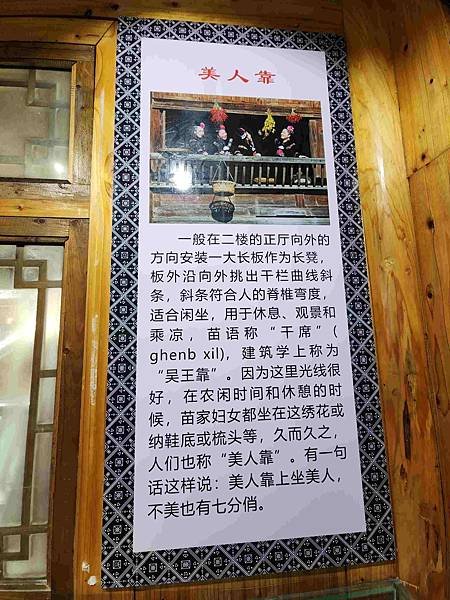 美人靠
一般在二楼的正厅向外的
方向安装一大长板作为长凳，
板外沿向外挑出干栏曲线斜
条，斜条符合人的脊椎弯度，
适合闲坐，用于休息、观景和
乘凉，苗语称“干席”(
ghenb xil)，建筑学上称为
“吴王靠”。因为这里光线很
好，在农闲时间和休憩的时
候，苗家妇女都坐在这绣花或
纳鞋底或梳头等，久而久之，
人们也称“美人靠”。有一句
话这样说：美人靠上坐美人，
不美也有七分俏。